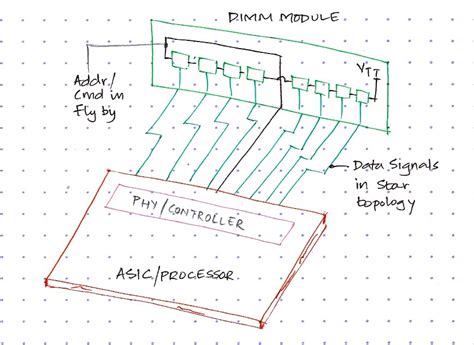 DIMM MODULE
Addr/
Cmd in
Fly by
VTT
Data Signals
in Star
topology
PHY/CONTROLLER
ASIC/PROCESSOR